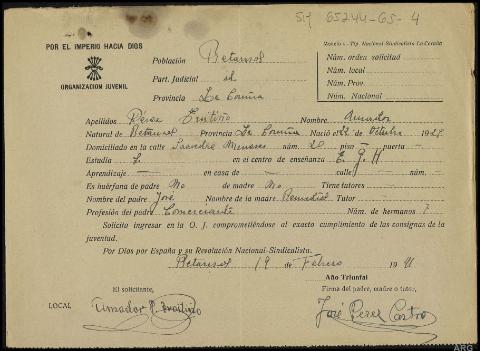 SM 65244-GS-4
POR EL IMPERIO HACIA DIOS
ORGANIZACION JUVENIL
Modelo - Tip. Nacional-Sindicalista-La Coruña
Población Betanzos
Part. Judicial id
Provincia La Coruña
Núm. orden solicitud
Núm. local
Núm. Prov.
Núm. Nacional
Apellidos Pérez Nombre Amador
Natural de Betanzos Provincia La Coruña Nació 22 Octubre 19
Domiciliado en la calle núm. 20 piso — puerta —
Estudia en el centro de enseñanza E. G. H
Aprendizaje — en casa de — calle — núm. —
Es huérfano de padre No de madre No Tiene tutores —
Nombre del padre José Nombre de la madre Remedios Tutor
Profesión del padre Comerciante Núm. de hermanos 7
Solicita ingresar en la O. J. comprometiéndose al exacto cumplimiento de las consignas de la
juventud.
Por Dios por España y su Revolución Nacional-Sindicalista.
Betanzos 19 de Febrero 19 41
Año Triunfal
El solicitante, Firma del padre, madre o tutor,
LOCAL
Amador P.
José Pérez Castro
ARG